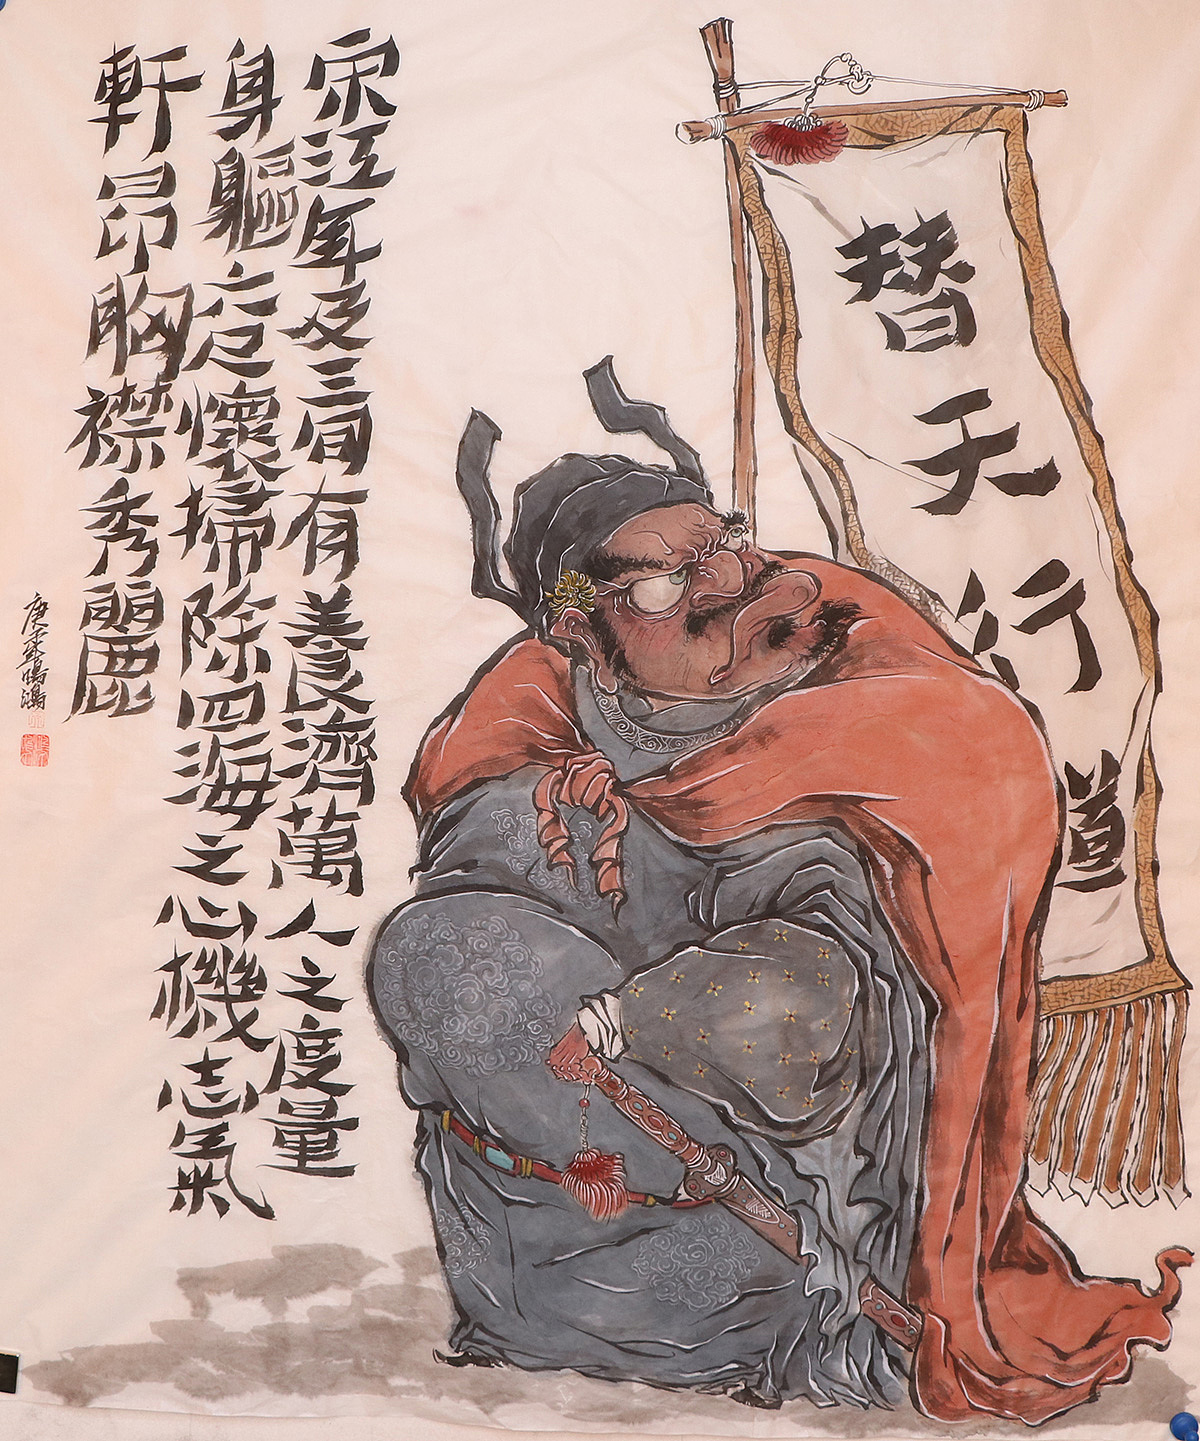 宋江年及三旬有養良濟萬人之度量
身軀六尺懷掃除四海之心機志氣
軒昂胸襟秀麗
替天行道